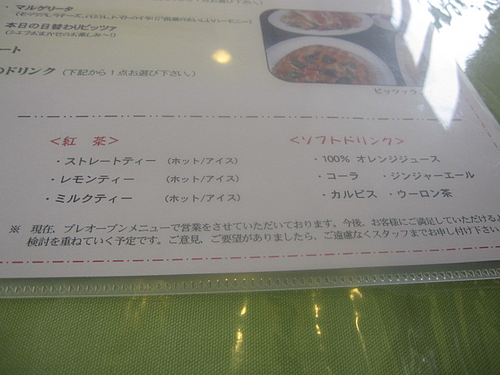 ・マルゲリータ
本日の日替わりピッツァ
ート
のドリンク（下記から1点お選び下さい。）
＜紅 茶＞
・ストレートティー （ホット/アイス）
・レモンティー （ホット/アイス）
・ミルクティー （ホット/アイス）
＜ソフトドリンク＞
・100% オレンジジュース
・コーラ ・ジンジャーエール
・カルピス ・ウーロン茶
※ 現在、プレオープンメニューで営業をさせていただいております。今後、お客様にご満足していただけると
検討を重ねていく予定です。ご意見、ご要望がありましたら、ご遠慮なくスタッフまでお申し付け下さい